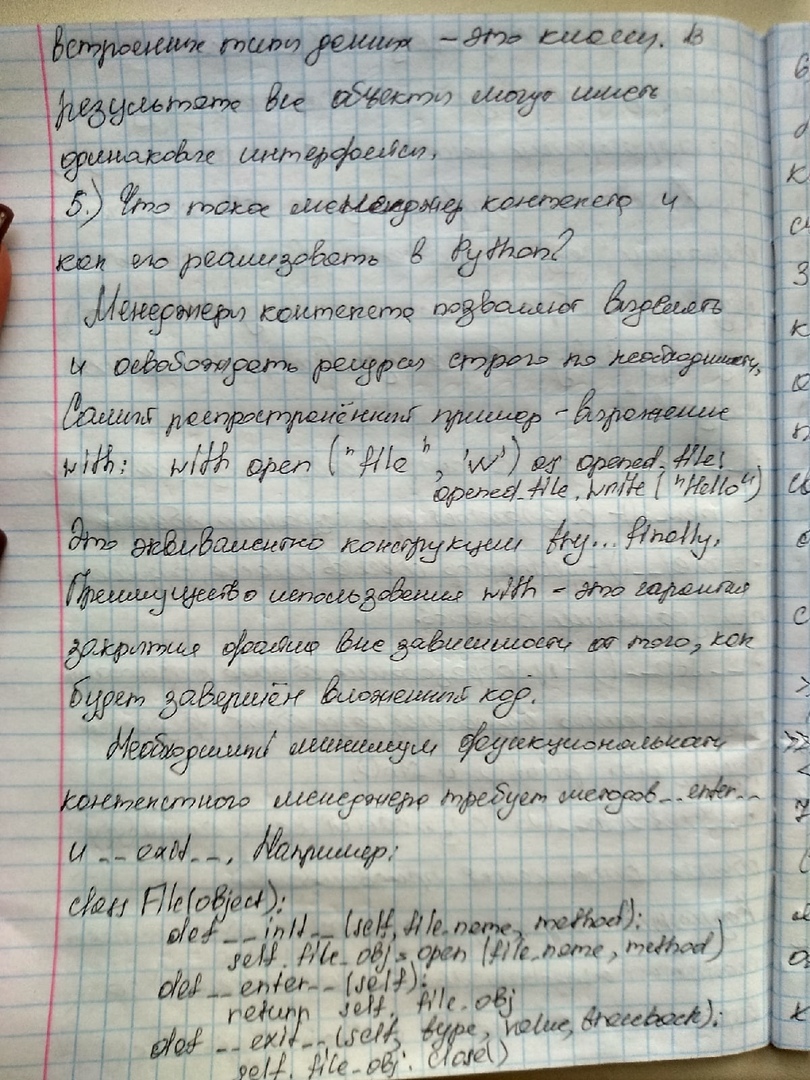 встроенных типы данных – это классы. В
результате все объекты могут иметь
одинаковые интерфейсы.
5.) Что такое менеджер контекста и
как его реализовать в Python?
Менеджеры контекста позволяют выделять
и освобождать ресурсы строго по необходимости,
Самый распространённый пример – выражение
with: with open ("file", 'w') as opened_file:
opened_file.write("Hello")
Это эквивалентно конструкции try...finally.
Преимущество использования with – это гарантия
закрытия файла вне зависимости от того, как
будет завершён вложенный код.
Необходимый минимум функциональности
контекстного менеджера требует методов __enter__
и __exit__. Например:
class File(object):
def __init__(self, file_name, method):
self.file_obj = open(file_name, method)
def __enter__(self):
return self.file_obj
def __exit__(self, type, value, traceback):
self.file_obj.close()